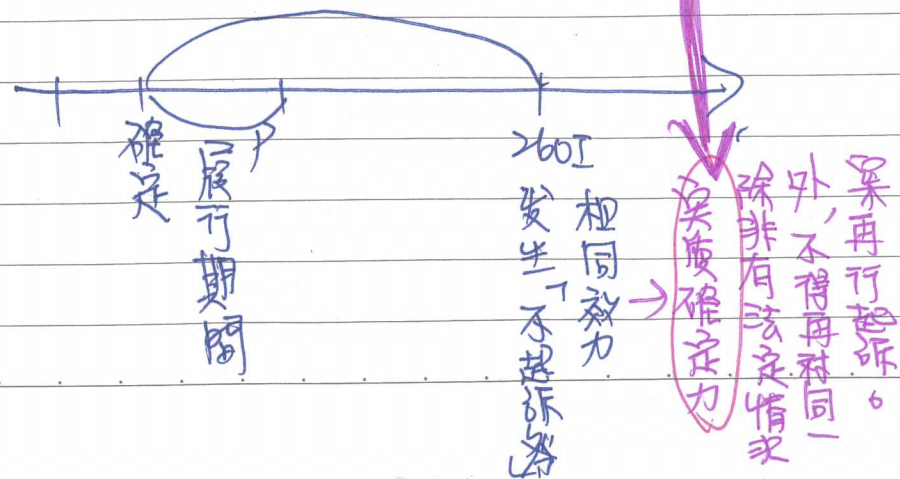 確定
履行期間
260I
发生「不起訴
相同效力
→实质確定力
除非有法定情况
外，不得再対同一
案再行起訴。